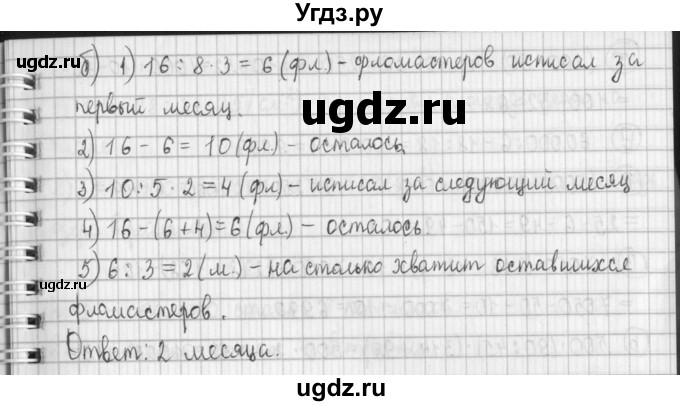 Угдз.ру
б) 1) 16 : 8 · 3 = 6 (фл) - фломастеров исписал за
первый месяц.
ugdz.ru
2) 16 - 6 = 10 (фл) - осталось
3) 10 : 5 · 2 = 4 (фл) - исписал за следующий месяц
4) 16 - (6 + 4) = 6 (фл) - осталось.
5) 6 : 3 = 2 (м.) - на столько хватит оставшихся
фломастеров.
Ответ: 2 месяца.
ugdz.ru
ugdz.ru